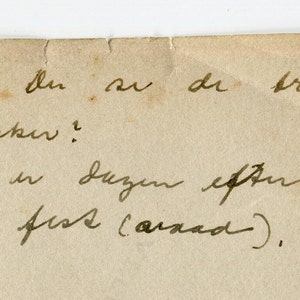 Du se de
er dagen efter
fest (avaad).